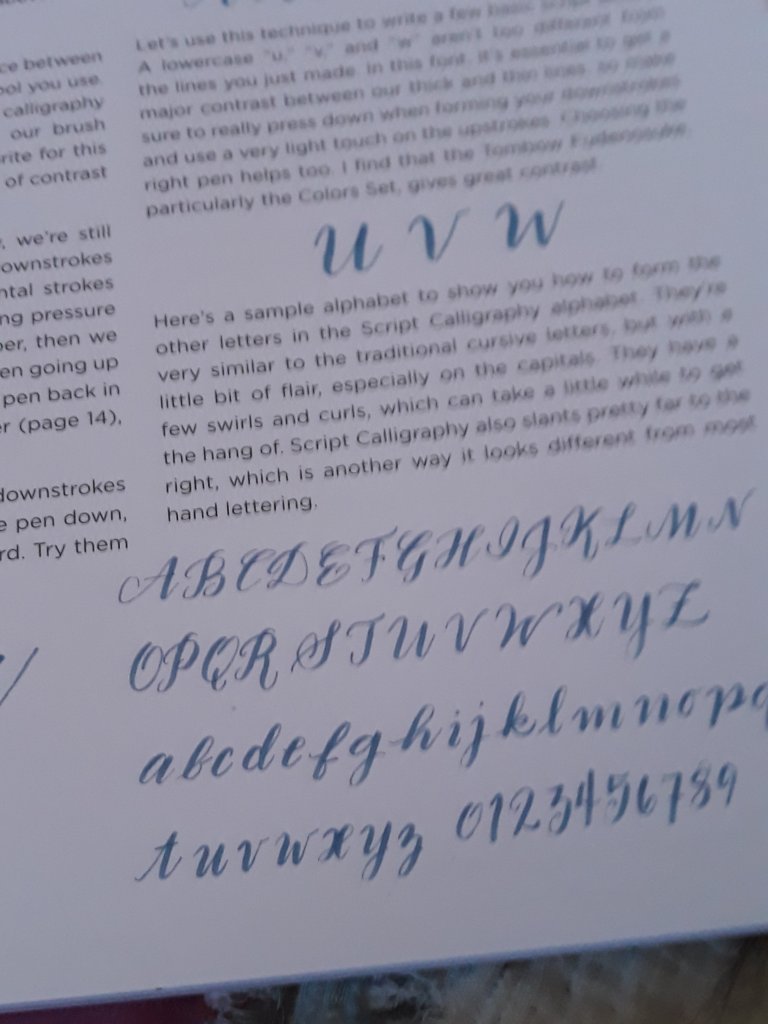 ce between
ool you use.
calligraphy
our brush
rite for this
of contrast
, we're still
ownstrokes
ntal strokes
ng pressure
er, then we
en going up
pen back in
r (page 14),
downstrokes
e pen down,
rd. Try them
Let's use this technique to write a few basic script
A lowercase "u," "v," and "w" aren't too different from
the lines you just made. In this font, it's essential to get a
major contrast between our thick and thin lines, so make
sure to really press down when forming your downstrokes
and use a very light touch on the upstrokes. Choosing the
right pen helps too. I find that the Tombow Fudenosuke,
particularly the Colors Set, gives great contrast.
u v w
Here's a sample alphabet to show you how to form the
other letters in the Script Calligraphy alphabet. They're
very similar to the traditional cursive letters, but with a
little bit of flair, especially on the capitals. They have a
few swirls and curls, which can take a little while to get
the hang of. Script Calligraphy also slants pretty far to the
right, which is another way it looks different from most
hand lettering.
A B C D E F G H I J K L M N
O P Q R S T U V W X Y Z
a b c d e f g h i j k l m n o p q
t u v w x y z 0 1 2 3 4 5 6 7 8 9